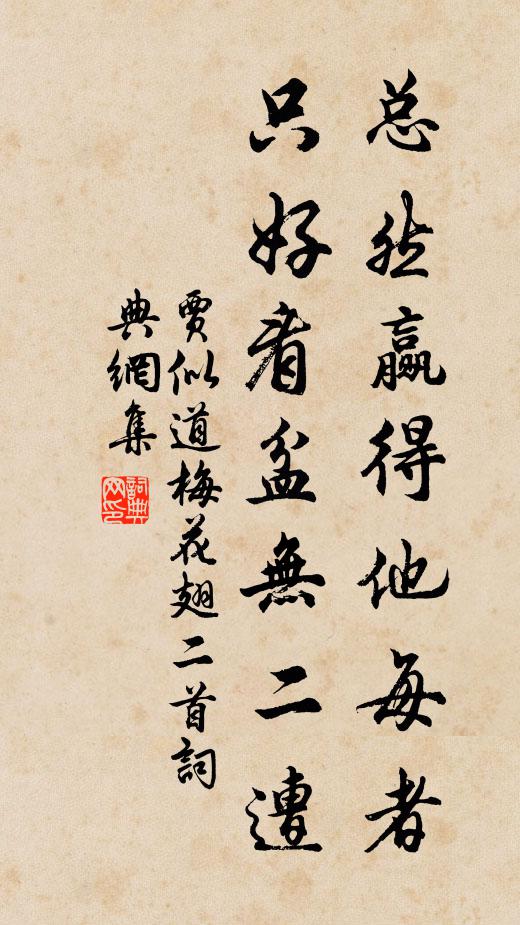 总然赢得他每者
只好看盆無二遭
賈似道梅花翅二首詞
典網集
詞典网印